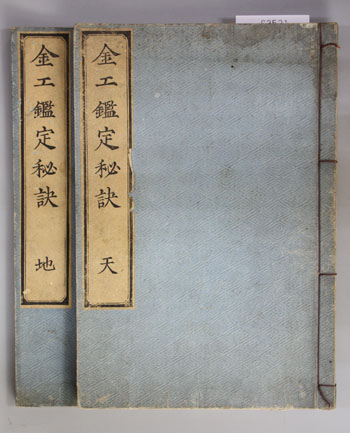 金工鑑定秘訣 天
金工鑑定秘訣 地